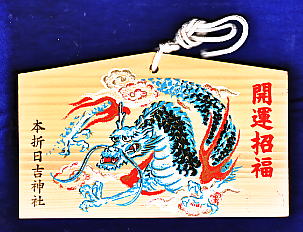 開運招福
本折日吉神社